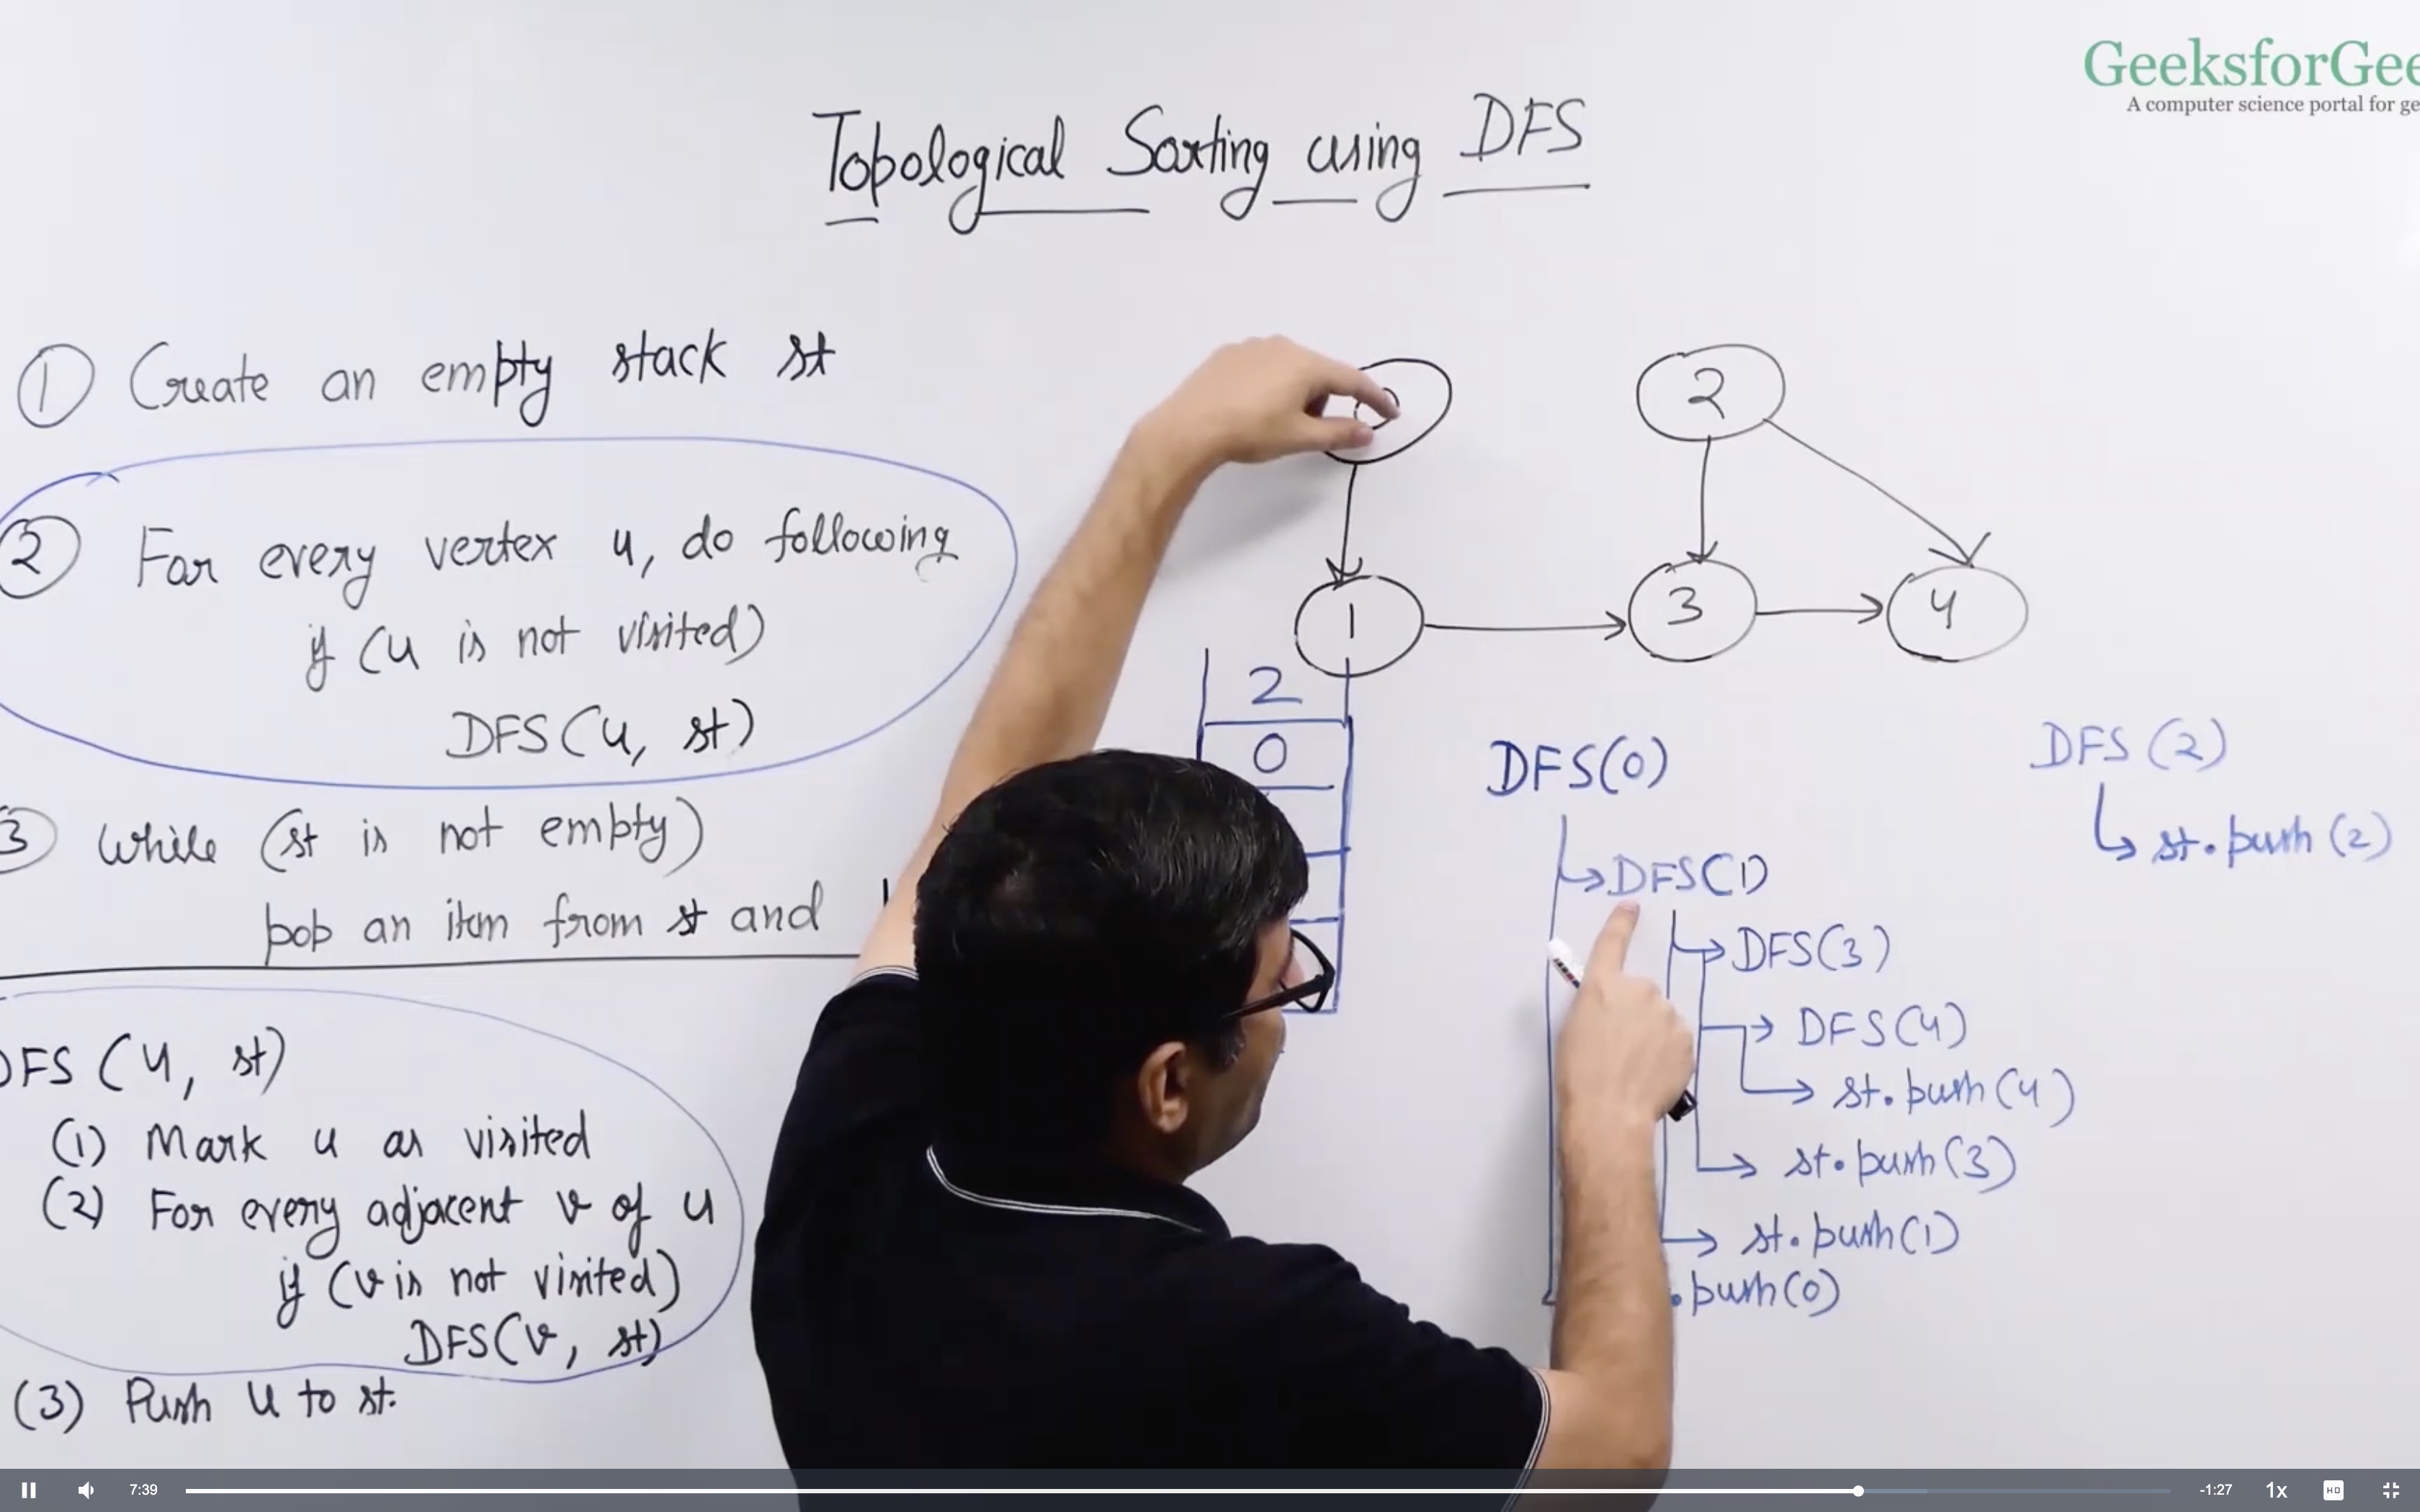 GeeksforGee
A computer science portal for ge
Topological Sorting using DFS
① Create an empty stack st
② For every vertex u, do following
if (u is not visited)
DFS(u, st)
③ While (st is not empty)
pop an item from st and
DFS (u, st)
(1) Mark u as visited
(2) For every adjacent v of u
if (v is not visited)
DFS(v, st)
(3) Push u to st.
0
2
1
3
4
2
0
DFS(0)
DFS(1)
DFS(3)
DFS(4)
st.push(4)
st.push(3)
st.push(1)
.push(0)
DFS(2)
st.push(2)
7:39
-1:27
1x
HD